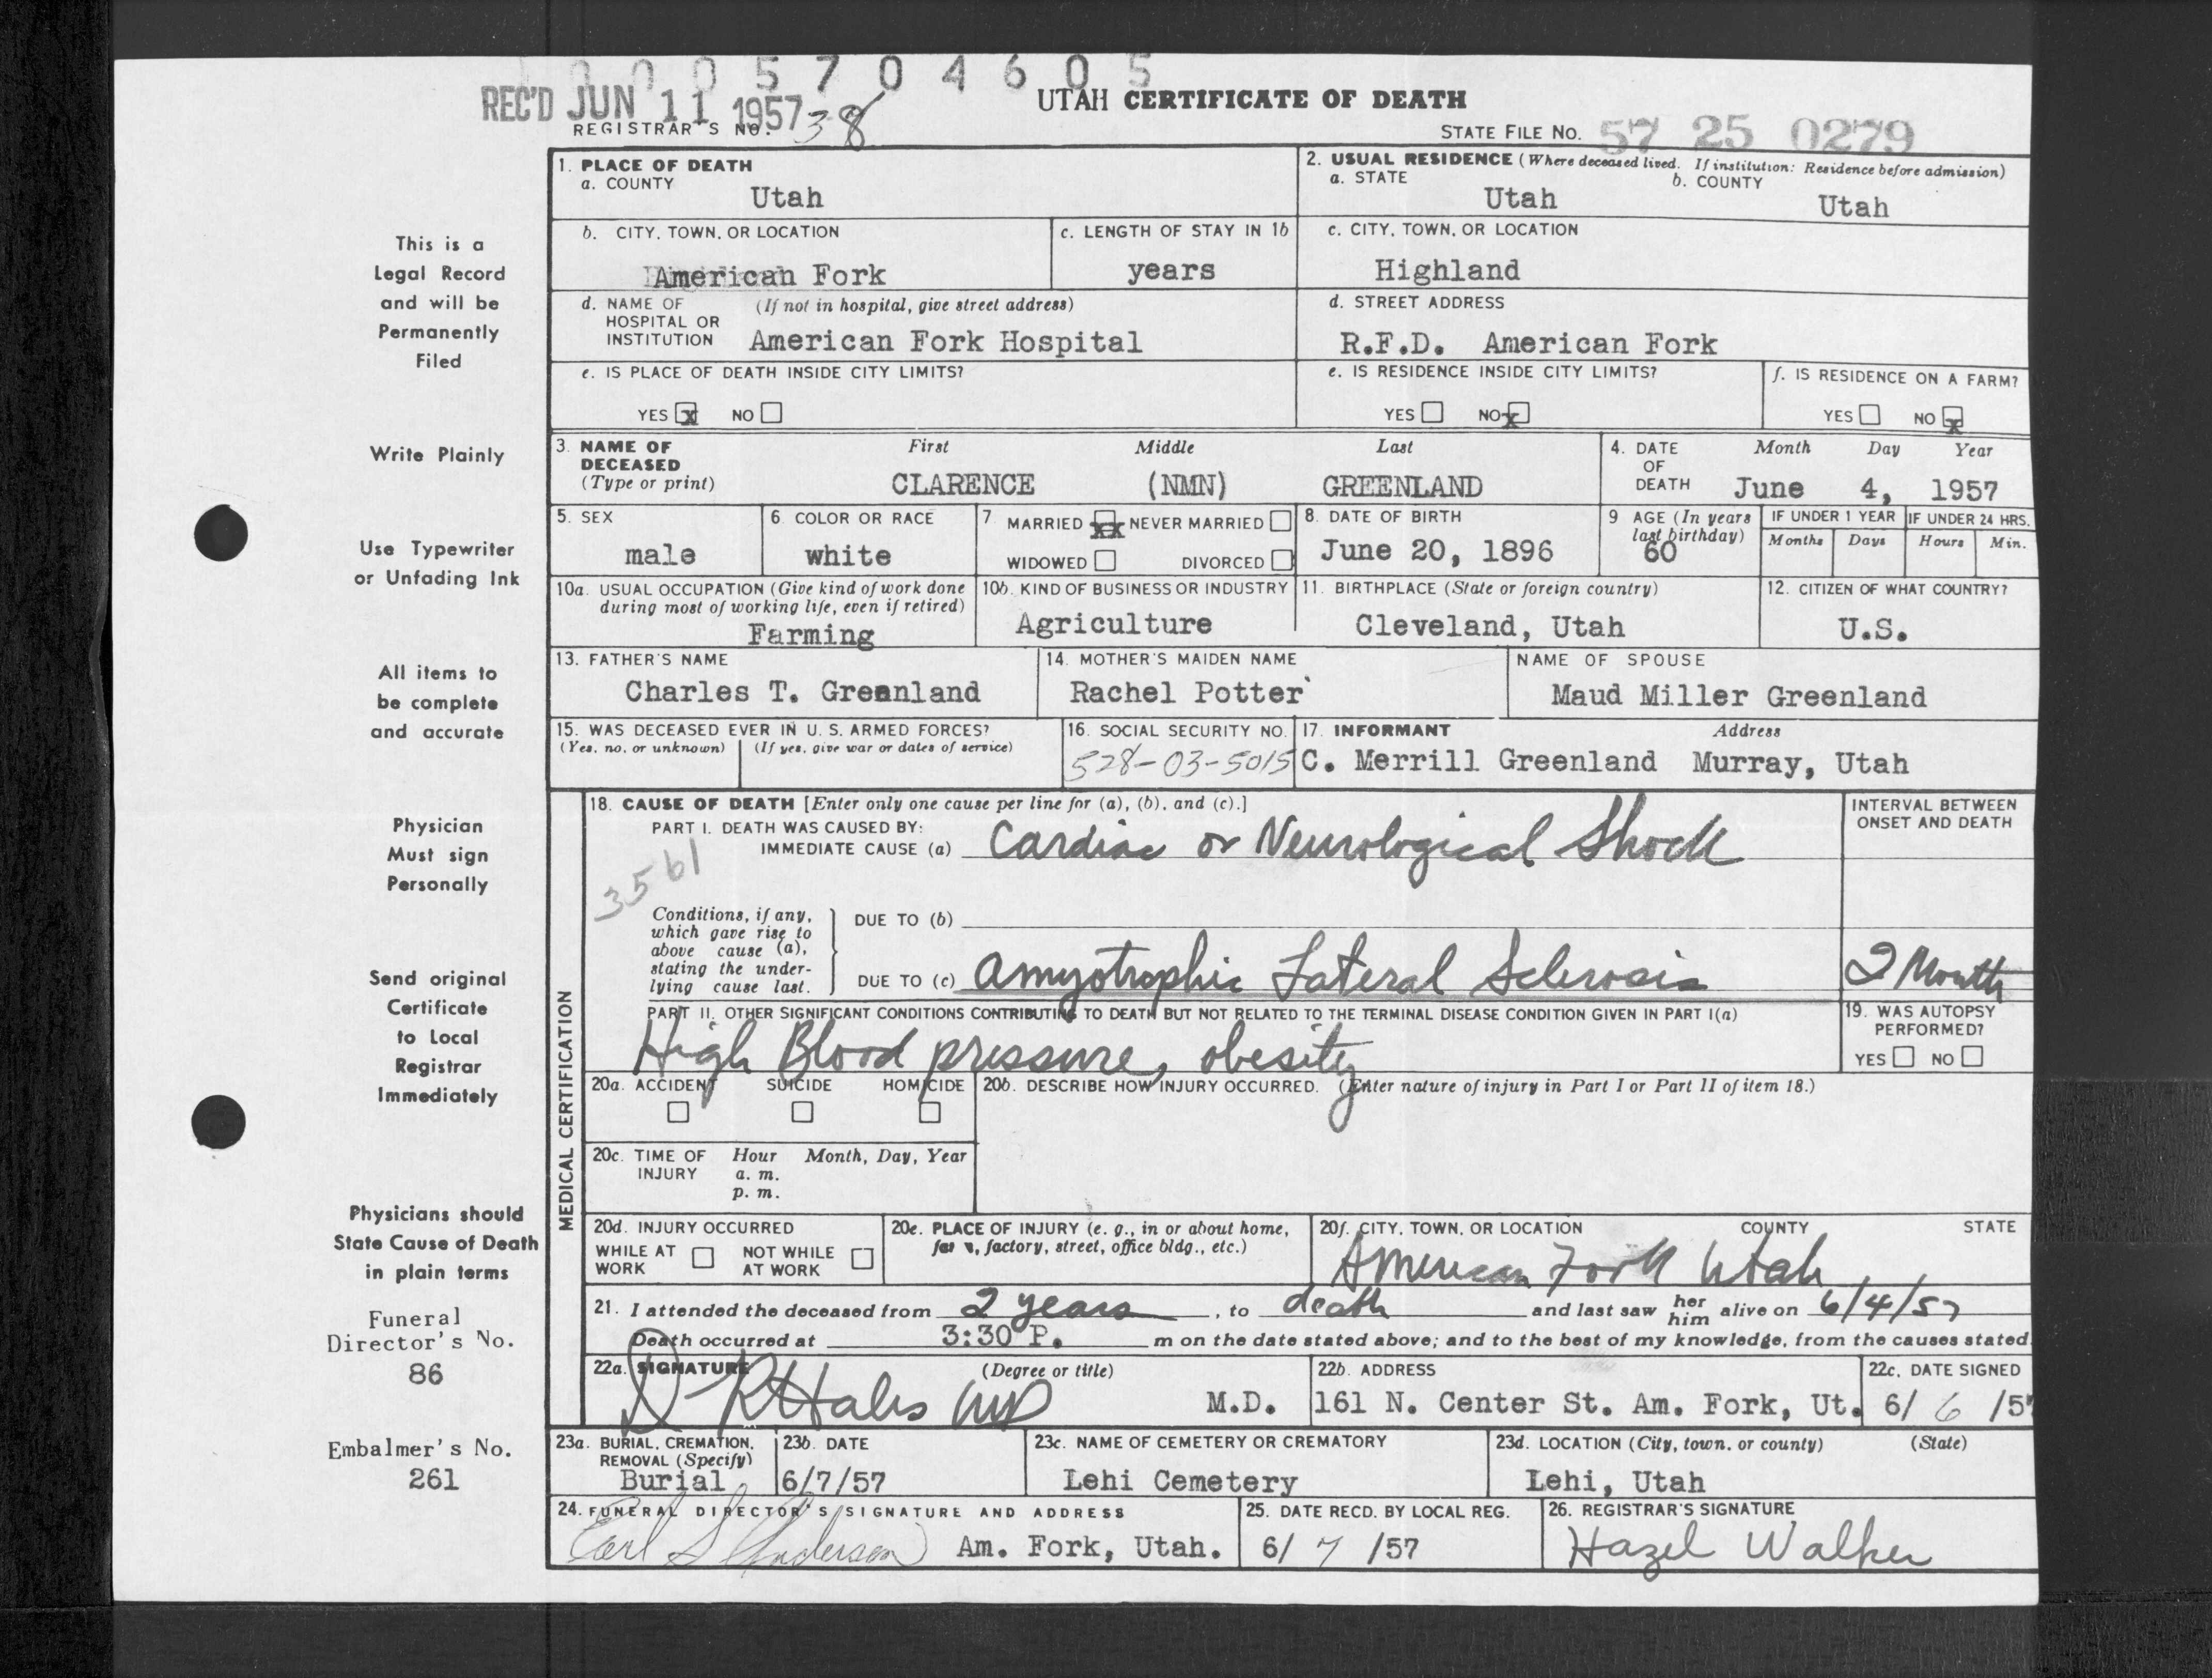 0 0 0 5 7 0 4 6 0 5
REC'D JUN 11 1957
UTAH CERTIFICATE OF DEATH
REGISTRAR'S NO. 38
STATE FILE NO. 57 25 0279
1. PLACE OF DEATH
a. COUNTY
Utah
2. USUAL RESIDENCE (Where deceased lived. If institution: Residence before admission)
a. STATE
Utah
b. COUNTY
Utah
b. CITY, TOWN, OR LOCATION
American Fork
c. LENGTH OF STAY IN 1b
years
c. CITY, TOWN, OR LOCATION
Highland
d. NAME OF HOSPITAL OR INSTITUTION
(If not in hospital, give street address)
American Fork Hospital
d. STREET ADDRESS
R.F.D. American Fork
e. IS PLACE OF DEATH INSIDE CITY LIMITS?
YES x NO
e. IS RESIDENCE INSIDE CITY LIMITS?
YES NO x
f. IS RESIDENCE ON A FARM?
YES NO x
3. NAME OF DECEASED (Type or print)
First Middle Last
CLARENCE (NMN) GREENLAND
4. DATE OF DEATH
Month Day Year
June 4, 1957
5. SEX
male
6. COLOR OR RACE
white
7. MARRIED xx NEVER MARRIED
WIDOWED DIVORCED
8. DATE OF BIRTH
June 20, 1896
9 AGE (In years last birthday)
60
IF UNDER 1 YEAR
Months Days
IF UNDER 24 HRS.
Hours Min.
10a. USUAL OCCUPATION (Give kind of work done during most of working life, even if retired)
Farming
10b. KIND OF BUSINESS OR INDUSTRY
Agriculture
11. BIRTHPLACE (State or foreign country)
Cleveland, Utah
12. CITIZEN OF WHAT COUNTRY?
U.S.
13. FATHER'S NAME
Charles T. Greenland
14. MOTHER'S MAIDEN NAME
Rachel Potter
NAME OF SPOUSE
Maud Miller Greenland
15. WAS DECEASED EVER IN U. S. ARMED FORCES?
(Yes, no, or unknown) (If yes, give war or dates of service)
16. SOCIAL SECURITY NO.
528-03-5015
17. INFORMANT Address
C. Merrill Greenland Murray, Utah
MEDICAL CERTIFICATION
18. CAUSE OF DEATH [Enter only one cause per line for (a), (b), and (c).]
PART I. DEATH WAS CAUSED BY:
IMMEDIATE CAUSE (a) Cardiac or Neurological Shock
3561
INTERVAL BETWEEN ONSET AND DEATH
Conditions, if any, which gave rise to above cause (a), stating the underlying cause last.
DUE TO (b)
DUE TO (c) Amyotrophic Lateral Sclerosis
2 Month
PART II. OTHER SIGNIFICANT CONDITIONS CONTRIBUTING TO DEATH BUT NOT RELATED TO THE TERMINAL DISEASE CONDITION GIVEN IN PART I(a)
High Blood pressure, obesity
19. WAS AUTOPSY PERFORMED?
YES NO
20a. ACCIDENT SUICIDE HOMICIDE
20b. DESCRIBE HOW INJURY OCCURRED. (Enter nature of injury in Part I or Part II of item 18.)
20c. TIME OF INJURY
Hour Month, Day, Year
a. m.
p. m.
20d. INJURY OCCURRED
WHILE AT WORK NOT WHILE AT WORK
20e. PLACE OF INJURY (e. g., in or about home, farm, factory, street, office bldg., etc.)
20f. CITY, TOWN, OR LOCATION COUNTY STATE
American Fork Utah
21. I attended the deceased from 2 years, to death and last saw her him alive on 6/4/57
Death occurred at 3:30 P. m on the date stated above; and to the best of my knowledge, from the causes stated.
22a. SIGNATURE (Degree or title)
Hales MD M.D.
22b. ADDRESS
161 N. Center St. Am. Fork, Ut.
22c. DATE SIGNED
6/ 6 /57
23a. BURIAL, CREMATION, REMOVAL (Specify)
Burial
23b. DATE
6/7/57
23c. NAME OF CEMETERY OR CREMATORY
Lehi Cemetery
23d. LOCATION (City, town, or county) (State)
Lehi, Utah
24. FUNERAL DIRECTOR'S SIGNATURE AND ADDRESS
Earl S Anderson Am. Fork, Utah.
25. DATE RECD. BY LOCAL REG.
6/ 7 /57
26. REGISTRAR'S SIGNATURE
Hazel Walker
This is a
Legal Record
and will be
Permanently
Filed
Write Plainly
Use Typewriter
or Unfading Ink
All items to
be complete
and accurate
Physician
Must sign
Personally
Send original
Certificate
to Local
Registrar
Immediately
Physicians should
State Cause of Death
in plain terms
Funeral
Director's No.
86
Embalmer's No.
261